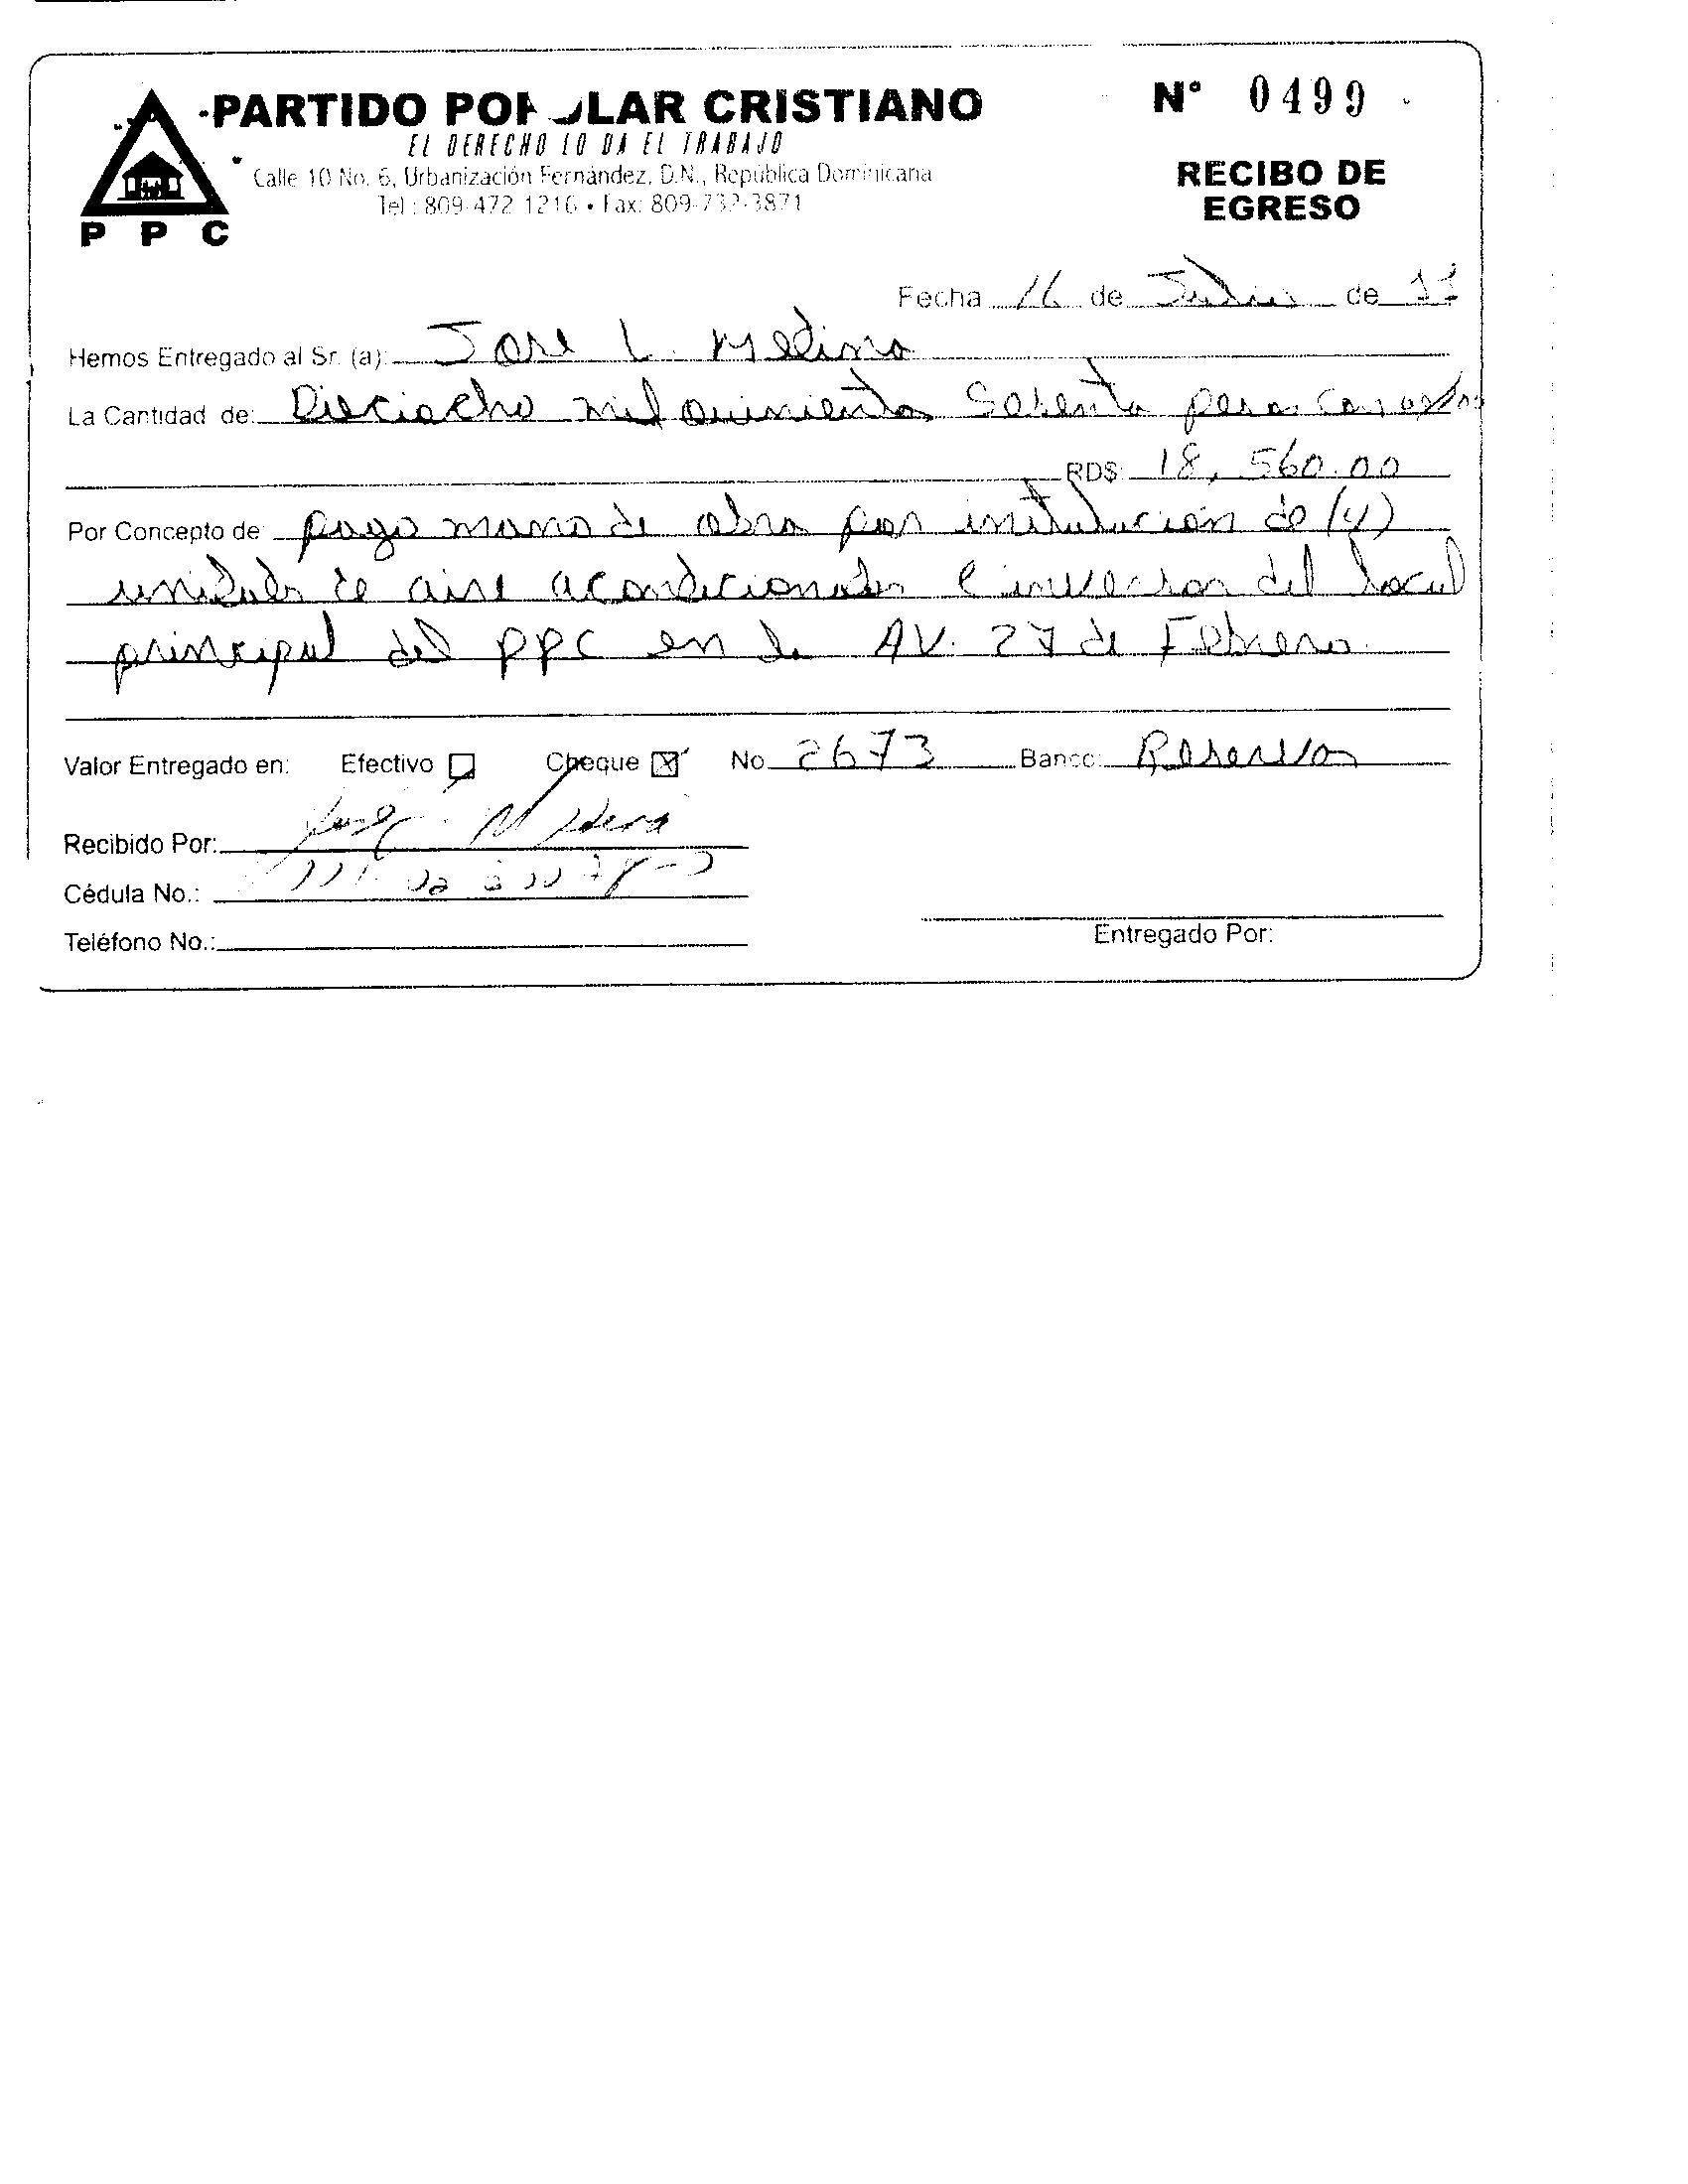 PARTIDO POPULAR CRISTIANO
N° 0499
EL DERECHO LO DA EL TRABAJO
Calle 10 No. 6, Urbanización Fernández, D.N., República Dominicana
Tel.: 809-472-1216 • Fax: 809-732-3871
RECIBO DE
EGRESO
P P C
Fecha 16 de Julio de 11
Hemos Entregado al Sr. (a): Jose L. Medina
La Cantidad de: Dieciocho mil quinientos Sesenta pesos con 00/00
RD$: 18,560.00
Por Concepto de: pago mano de obra por de (4)
unidades de aire acondicionados e inversor del local
principal del PPC en la AV. 27 de Febrero
Valor Entregado en: Efectivo Cheque No. 2673 Banco: Reservas
Recibido Por:
Cédula No.:
Teléfono No.:
Entregado Por: